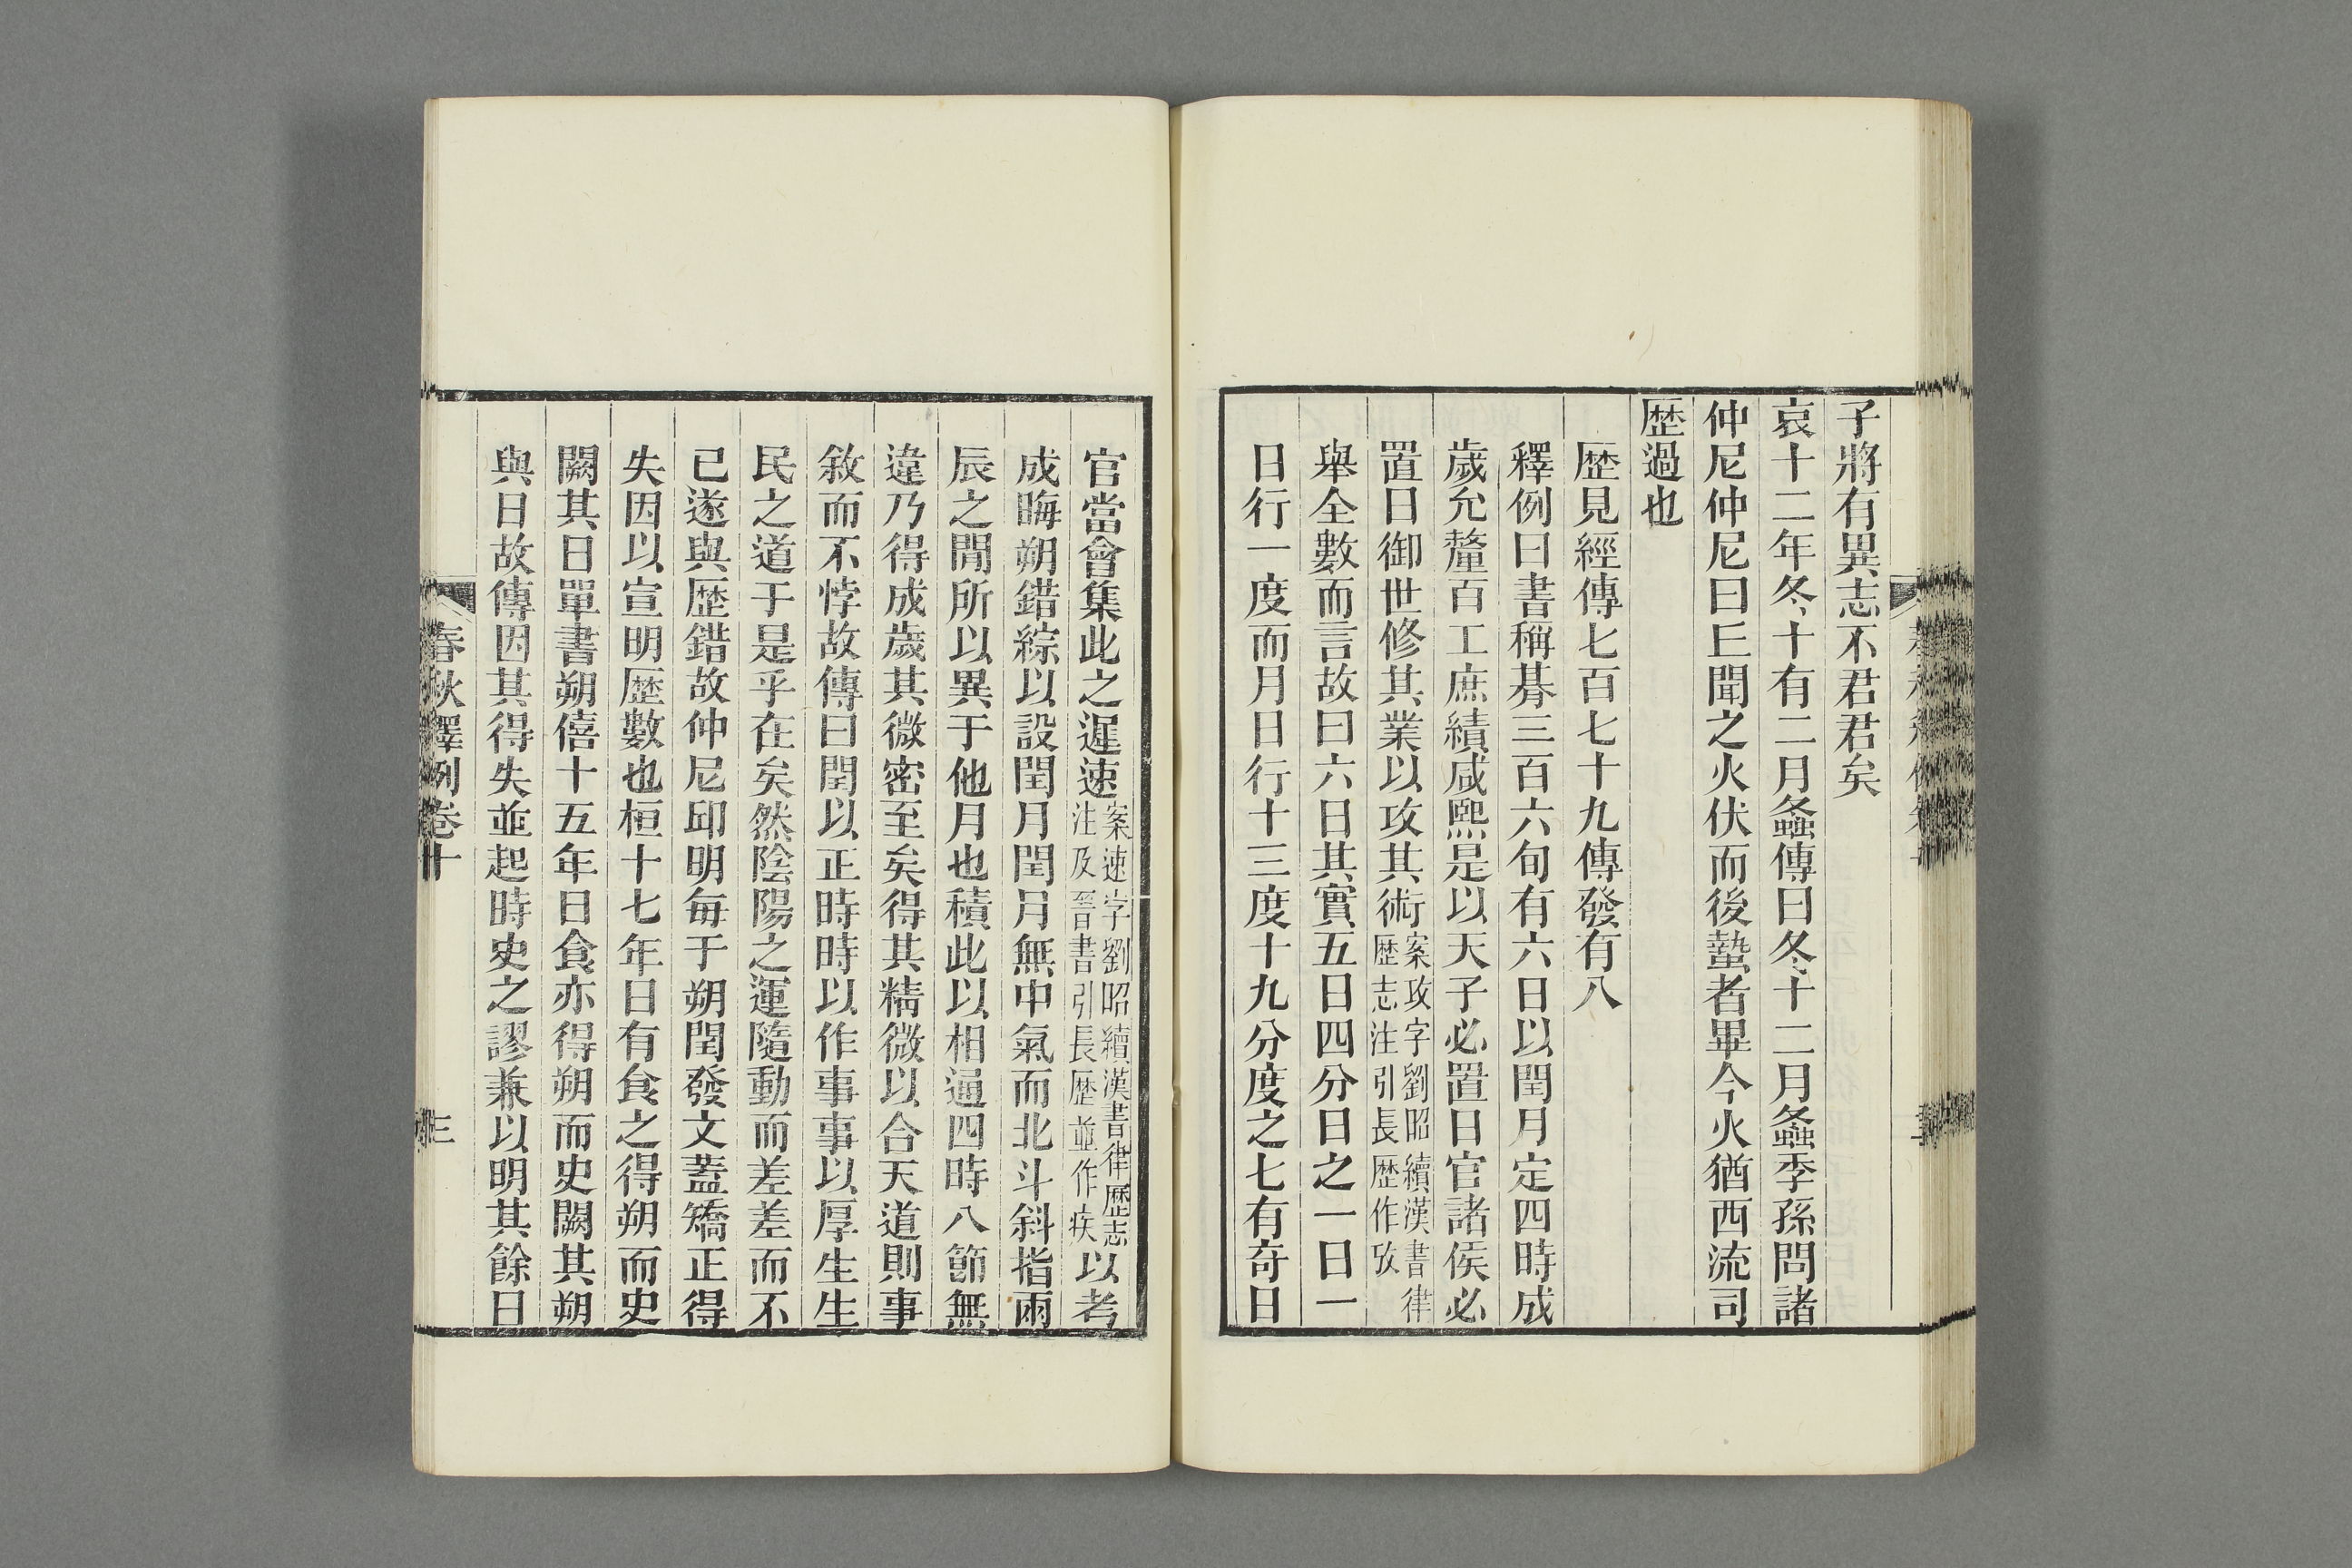 子將有異志不君君矣
哀十二年冬十有二月螽傳曰冬十二月螽季孫問諸
仲尼仲尼曰丘聞之火伏而後蟄者畢今火猶西流司
歴過也
歴見經傳七百七十九傳發有八
釋例曰書稱朞三百六旬有六日以閏月定四時成
歲允釐百工庶績咸熙是以天子必置日官諸侯必
置日御世修其業以攻其術案攻字劉昭續漢書律
歴志注引長歴作攷
舉全數而言故曰六日其實五日四分日之一日一
日行一度而月日行十三度十九分度之七有奇日
官當會集此之遲速案速字劉昭續漢書律歴志
注及晉書引長歴並作疾以考
成晦朔錯綜以設閏月閏月無中氣而北斗斜指兩
辰之閒所以異于他月也積此以相通四時八節無
違乃得成歲其微密至矣得其精微以合天道則事
敘而不悖故傳曰閏以正時時以作事事以厚生生
民之道于是乎在矣然陰陽之運隨動而差差而不
已遂與歴錯故仲尼邱明每于朔閏發文蓋矯正得
失因以宣明歴數也桓十七年日有食之得朔而史
闕其日單書朔僖十五年日食亦得朔而史闕其朔
與日故傳因其得失並起時史之謬兼以明其餘日
春秋釋例卷十
三